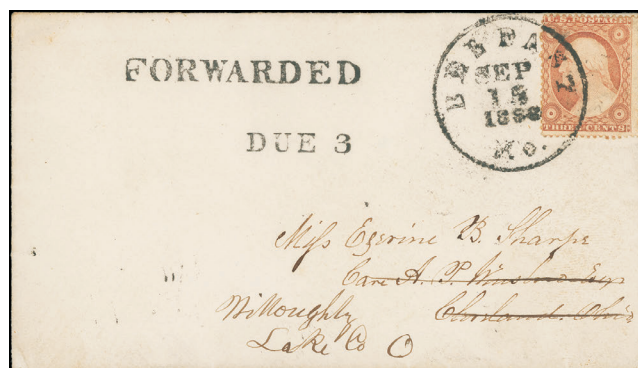 FORWARDED
DUE 3
SEP
15
Mo.
U.S. POSTAGE
THREE CENTS
Miss Egerine B. Sharpe
Care A. P. Winslow Esqr
Cleveland. Ohio
Willoughby
Lake Co O